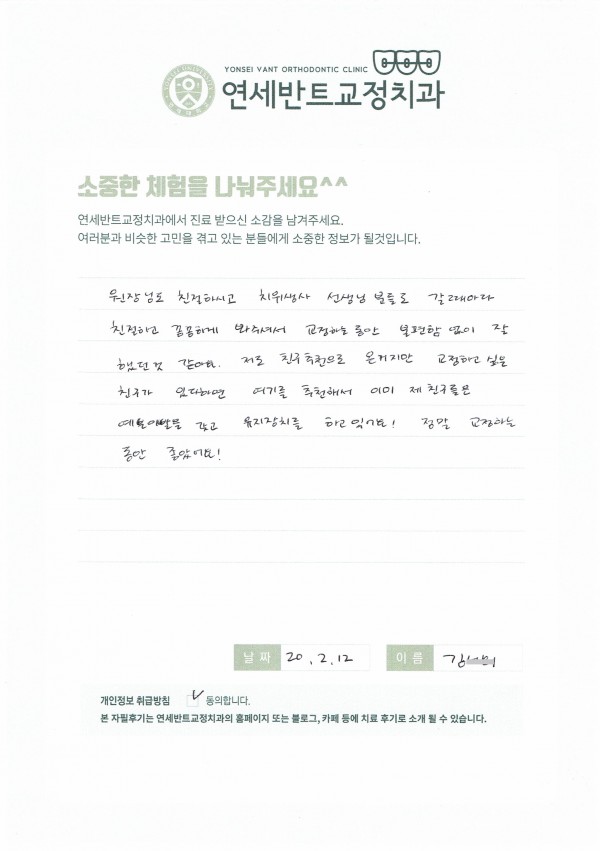 YONSEI VANT ORTHODONTIC CLINIC
연세반트교정치과
소중한 체험을 나눠주세요^^
연세반트교정치과에서 진료 받으신 소감을 남겨주세요.
여러분과 비슷한 고민을 겪고 있는 분들에게 소중한 정보가 될것입니다.
원장님도 친절하시고 치위생사 선생님 분들도 갈때마다
친절하고 꼼꼼하게 봐주셔서 교정하는 동안 불편함 없이 잘
했던 것 같아요. 저도 친구추천으로 온거지만 교정하고 싶은
친구가 있다하면 여기를 추천해서 이미 제 친구들은
예쁜이빨을 갖고 유지장치를 하고 있어요! 정말 교정하는
동안 좋았어요!
날 짜 20. 2. 12 이 름 김
개인정보 취급방침 동의합니다.
본 자필후기는 연세반트교정치과의 홈페이지 또는 블로그, 카페 등에 치료 후기로 소개 될 수 있습니다.